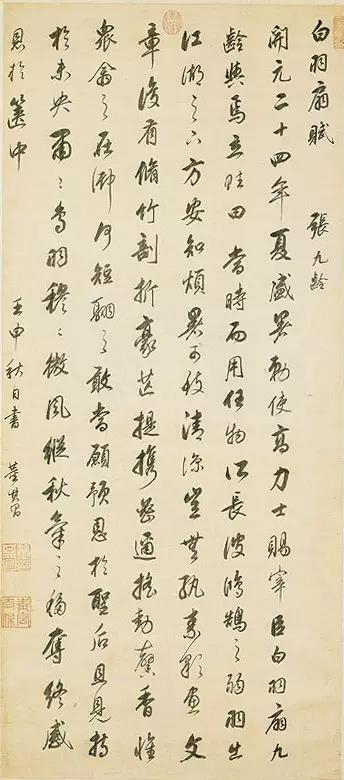 白羽扇賦 張九齡
開元二十四年夏盛暑勅使高力士賜宰臣白羽扇九
齡與焉立賦曰當時而用任物所長彼鴻鵠之弱羽出
江湖之下方安知煩暑可致清涼豈無紈素彩畫文
章復有脩竹剖析豪芒提攜密邇搖動馨香惟
眾禽之在御何短翮之敢當顧預恩於聖后且見持
於未央肅〻鳥羽穆〻微風縱秋氣之移奪終感
恩於篋中
壬申秋日書 董其昌